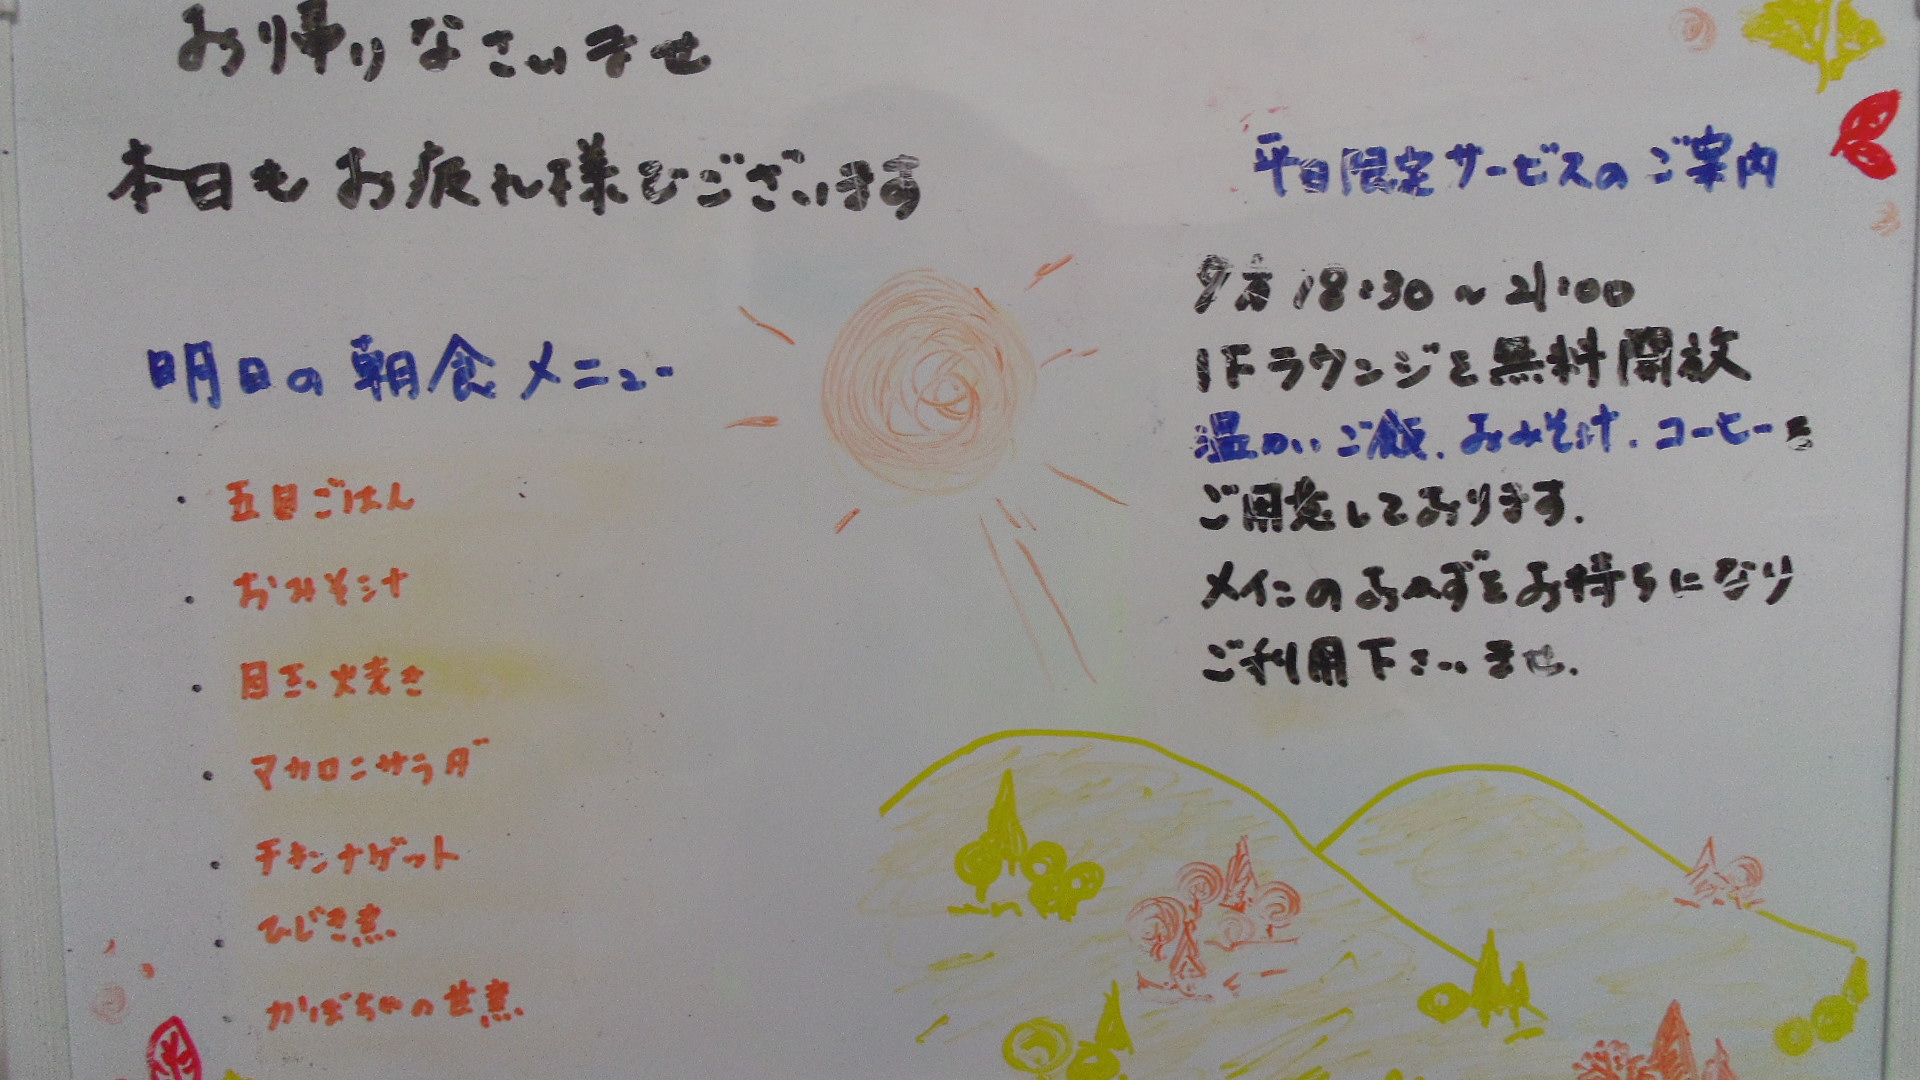 お帰りなさいませ
本日もお疲れ様でございます
明日の朝食メニュー
・五目ごはん
・おみそ汁
・目玉焼き
・マカロニサラダ
・チキンナゲット
・ひじき煮
・かぼちゃの甘煮
平日限定サービスのご案内
夕方 18:30〜21:00
1Fラウンジを無料開放
温かいご飯、おみそ汁、コーヒーを
ご用意しております。
メインのおかずをお持ちになり
ご利用下さいませ。